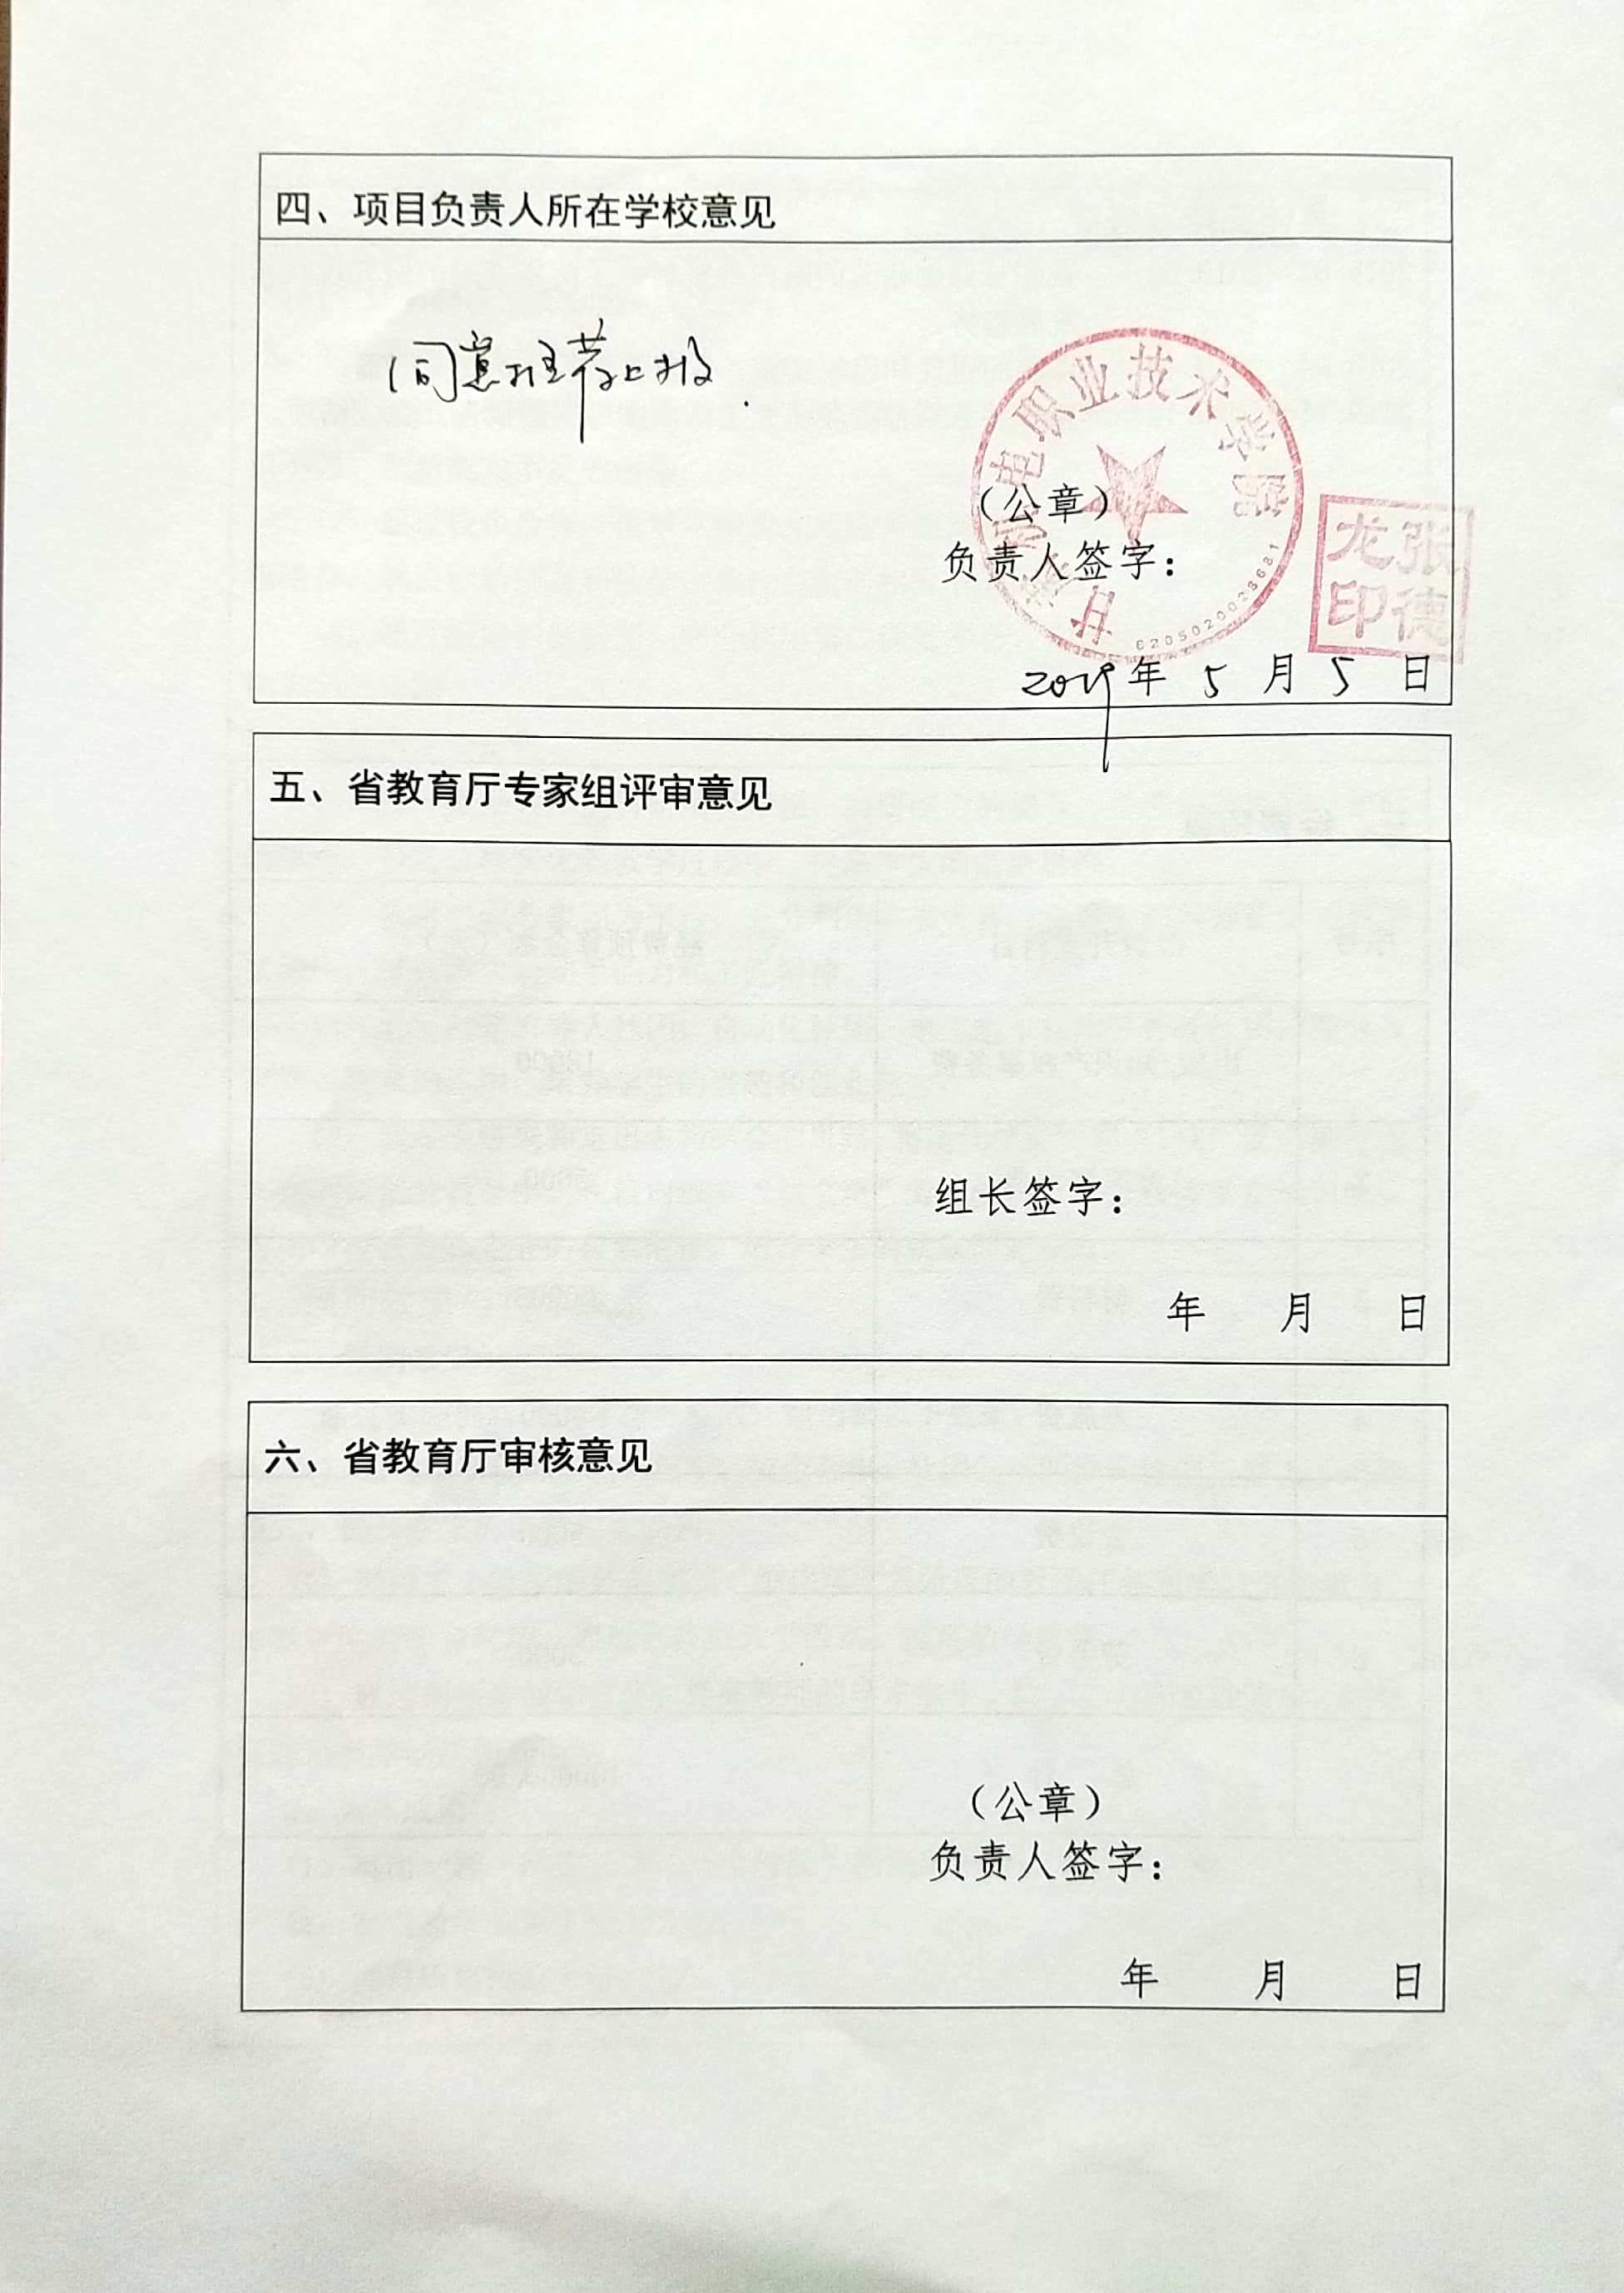 四、项目负责人所在学校意见
同意推荐上报.
甘肃机电职业技术学院
(公章)
负责人签字:
6205020028681
张德龙印
2019年 5 月 5 日
五、省教育厅专家组评审意见
组长签字:
年 月 日
六、省教育厅审核意见
(公章)
负责人签字:
年 月 日